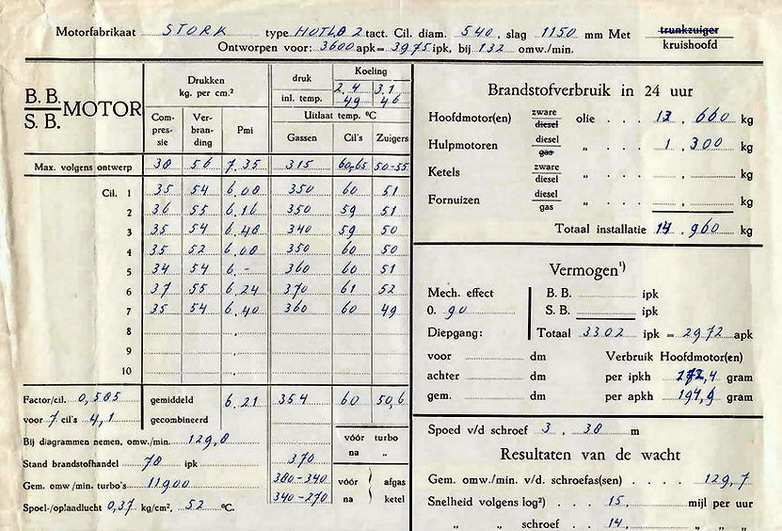 Motorfabrikaat STORK type HOTLO 2 tact. Cil. diam. 540, slag 1150 mm Met trunkzuiger
kruishoofd
Ontworpen voor: 3600 apk = 3975 ipk, bij 132 omw./min.
B. B.
S. B. MOTOR
Drukken
kg. per cm.²
druk
inl. temp.
Koeling
2.4 3.1
49 46
Com-
pres-
sie
Ver-
bran-
ding
Pmi
Uitlaat temp. °C
Gassen Cil's Zuigers
Max. volgens ontwerp 38 56 7.35 315 60,65 50-55
Cil. 1 35 54 6.08 350 60 51
2 36 55 6.16 350 59 51
3 35 54 6.48 340 59 50
4 35 52 6.08 350 60 50
5 34 54 6.- 360 60 51
6 37 55 6.24 370 61 52
7 35 54 6.40 360 60 49
8
9
10
Factor/cil. 0,585 gemiddeld 6.21 354 60 50,6
voor 7 cil's 4,1 gecombineerd
Bij diagrammen nemen. omw./min. 129,8
vóór turbo
na "
Stand brandstofhandel 78 ipk 370
Gem. omw/min. turbo's 11900 380-340 vóór afgas
Spoel-/oplaadlucht 0,37 kg/cm², 52 °C. 340-270 na ketel
Brandstofverbruik in 24 uur
Hoofdmotor(en) zware
diesel olie . . 13 . 660 kg
Hulpmotoren diesel
gas " . . 1 . 300 kg
Ketels zware
diesel " . . kg
Fornuizen diesel
gas " . . kg
Totaal installatie 14 . 960 kg
Vermogen¹)
Mech. effect B. B. ipk
0. 90 S. B. ipk
Diepgang: Totaal 3302 ipk = 2972 apk
voor dm Verbruik Hoofdmotor(en)
achter dm per ipkh 172,4 gram
gem. dm per apkh 191,9 gram
Spoed v/d schroef 3 . 38 m
Resultaten van de wacht
Gem. omw./min. v/d. schroefas(sen) . 129,7
Snelheid volgens log²) . . . 15, mijl per uur
" " schroef . . . 14, " " "